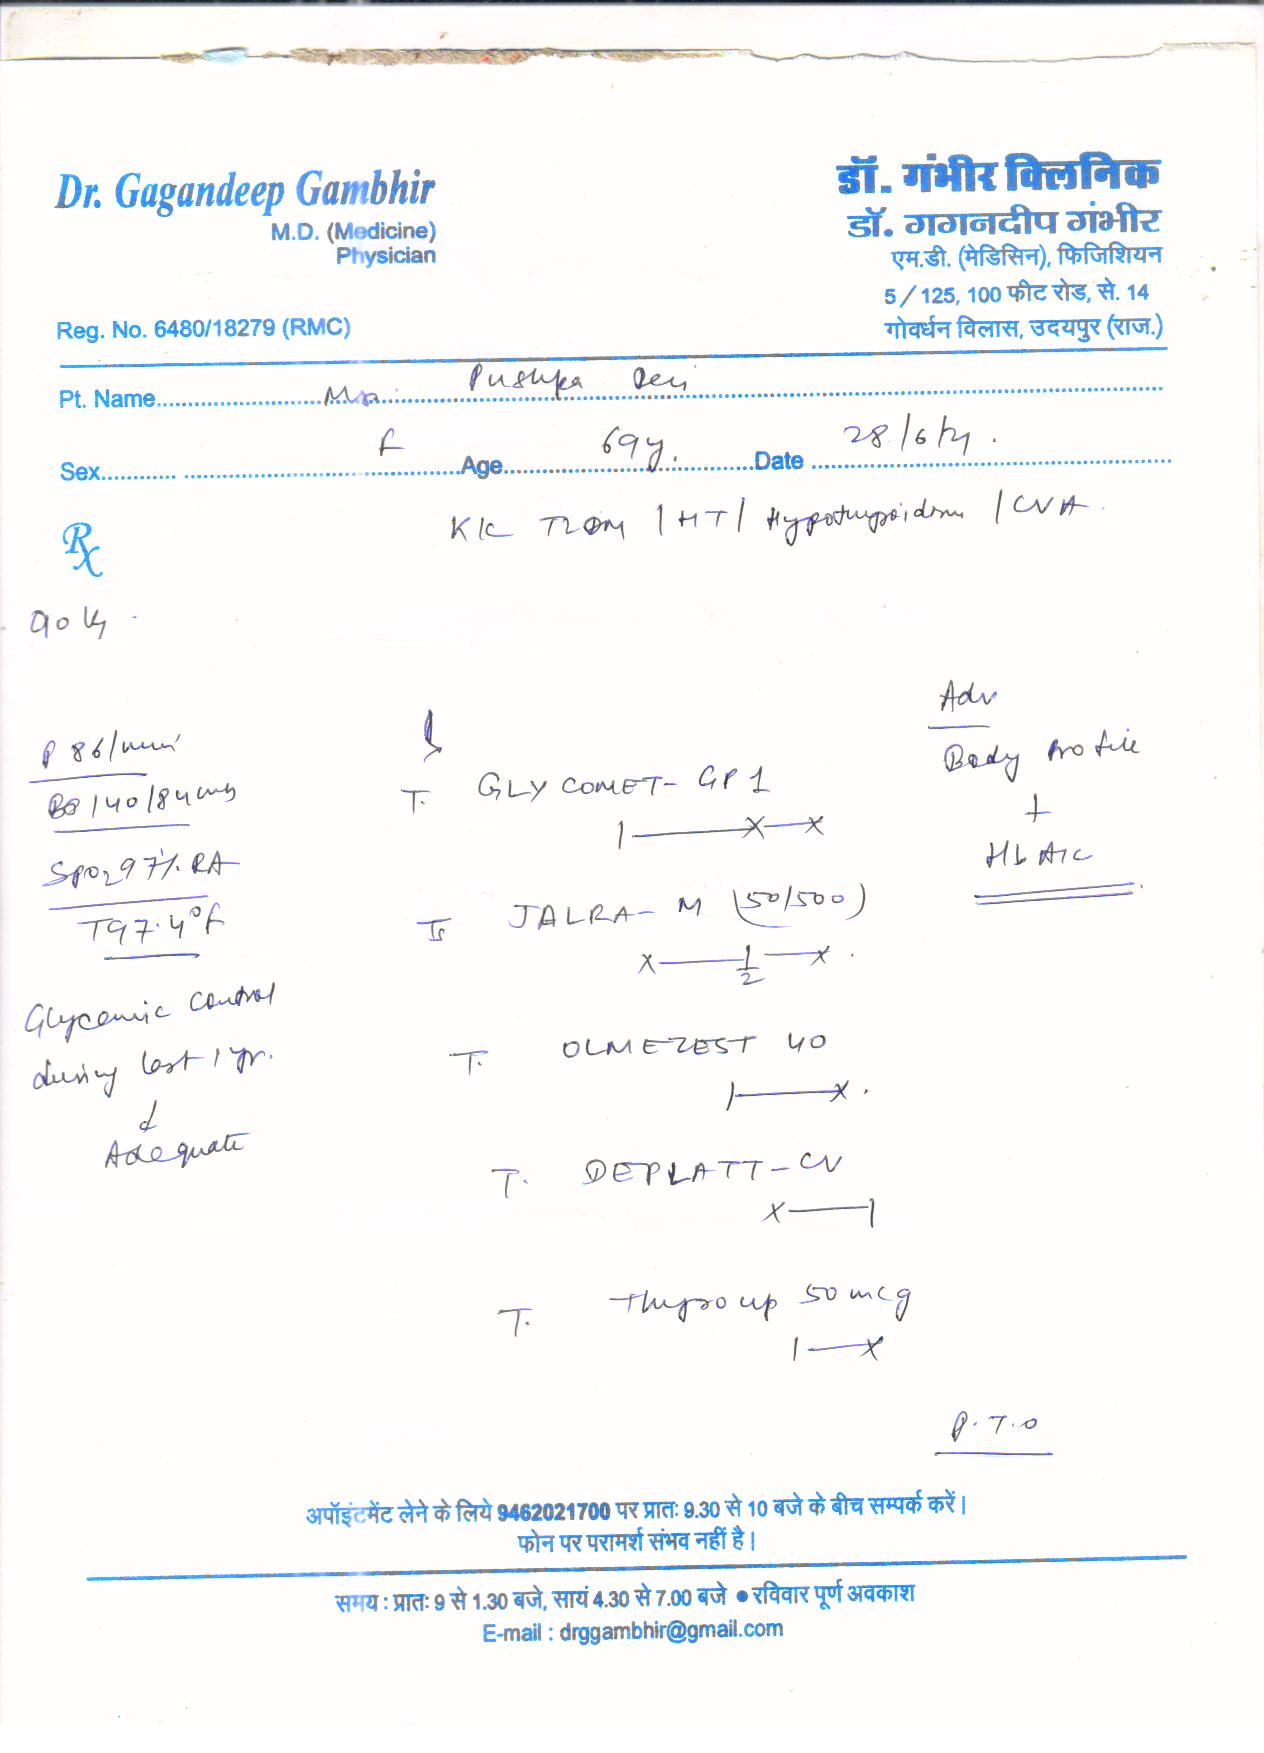 Dr. Gagandeep Gambhir
M.D. (Medicine)
Physician
Reg. No. 6480/18279 (RMC)
डॉ. गंभीर क्लिनिक
डॉ. गगनदीप गंभीर
एम.डी. (मेडिसिन), फिजिशियन
5/125, 100 फीट रोड, से. 14
गोवर्धन विलास, उदयपुर (राज.)
Pt. Name Mrs. Pushpa Devi
Sex F Age 69y. Date 28/6/24.
Rx
K/C T2DM / HT / Hypothyroidism / CVA
90 kg
P 86/min
BP 140/84 mmHg
SPO2 97% RA
T 97.4°F
Glycemic control
during last 1 yr.
Adequate
T. GLYCOMET-GP1
1 — x — x
T. JALRA-M (50/500)
x — 1/2 — x
T. OLMEZEST 40
1 — x
T. DEPLATT-CV
x — 1
T. Thyroup 50 mcg
1 — x
Adv
Body Profile
+
HbA1C
P.T.O
अपॉइंटमेंट लेने के लिये 9462021700 पर प्रातः 9.30 से 10 बजे के बीच सम्पर्क करें।
फोन पर परामर्श संभव नहीं है।
समय : प्रातः 9 से 1.30 बजे, सायं 4.30 से 7.00 बजे ● रविवार पूर्ण अवकाश
E-mail : drggambhir@gmail.com